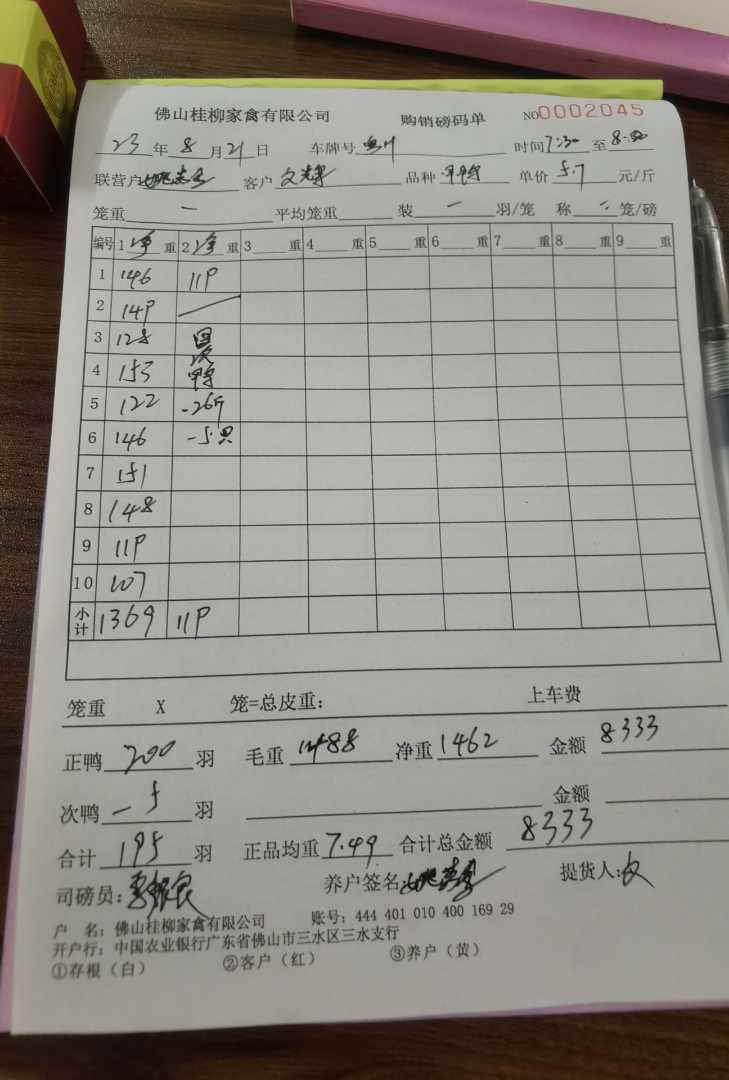 佛山桂柳家禽有限公司 购销磅码单 NO0002045
23年8月21日 车牌号 时间7:30至8:00
联营户 客户 品种 单价5.7元/斤
笼重一 平均笼重 装一羽/笼 称 笼/磅
编号 1净重 2净重 3重 4重 5重 6重 7重 8重 9重
1 146 119
2 149
3 128
4 153
5 122 -26斤
6 146 -5只
7 151
8 148
9 119
10 107
小计 1369 119
笼重 X 笼=总皮重: 上车费
正鸭200羽 毛重1488 净重1462 金额8333
次鸭-5羽 金额
合计195羽 正品均重7.49 合计总金额8333
司磅员: 养户签名 提货人:文
户 名: 佛山桂柳家禽有限公司 账号: 444 401 010 400 169 29
开户行: 中国农业银行广东省佛山市三水区三水支行
①存根(白) ②客户(红) ③养户(黄)